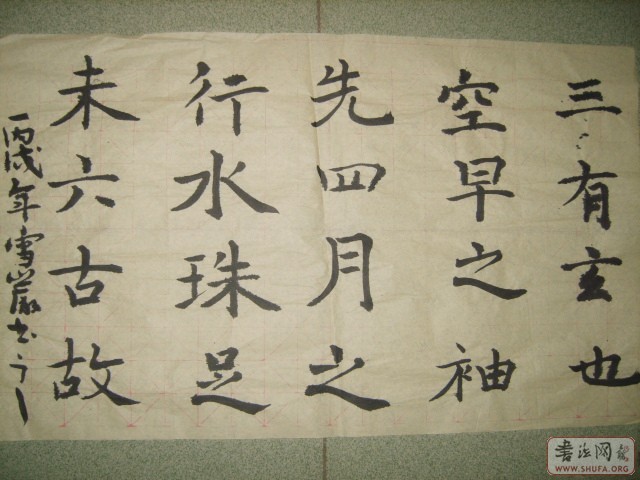 三有玄也
空早之袖
先四月之
行水珠足
未六古故
丙戌年雪岩书
书法网
WWW.SHUFA.ORG